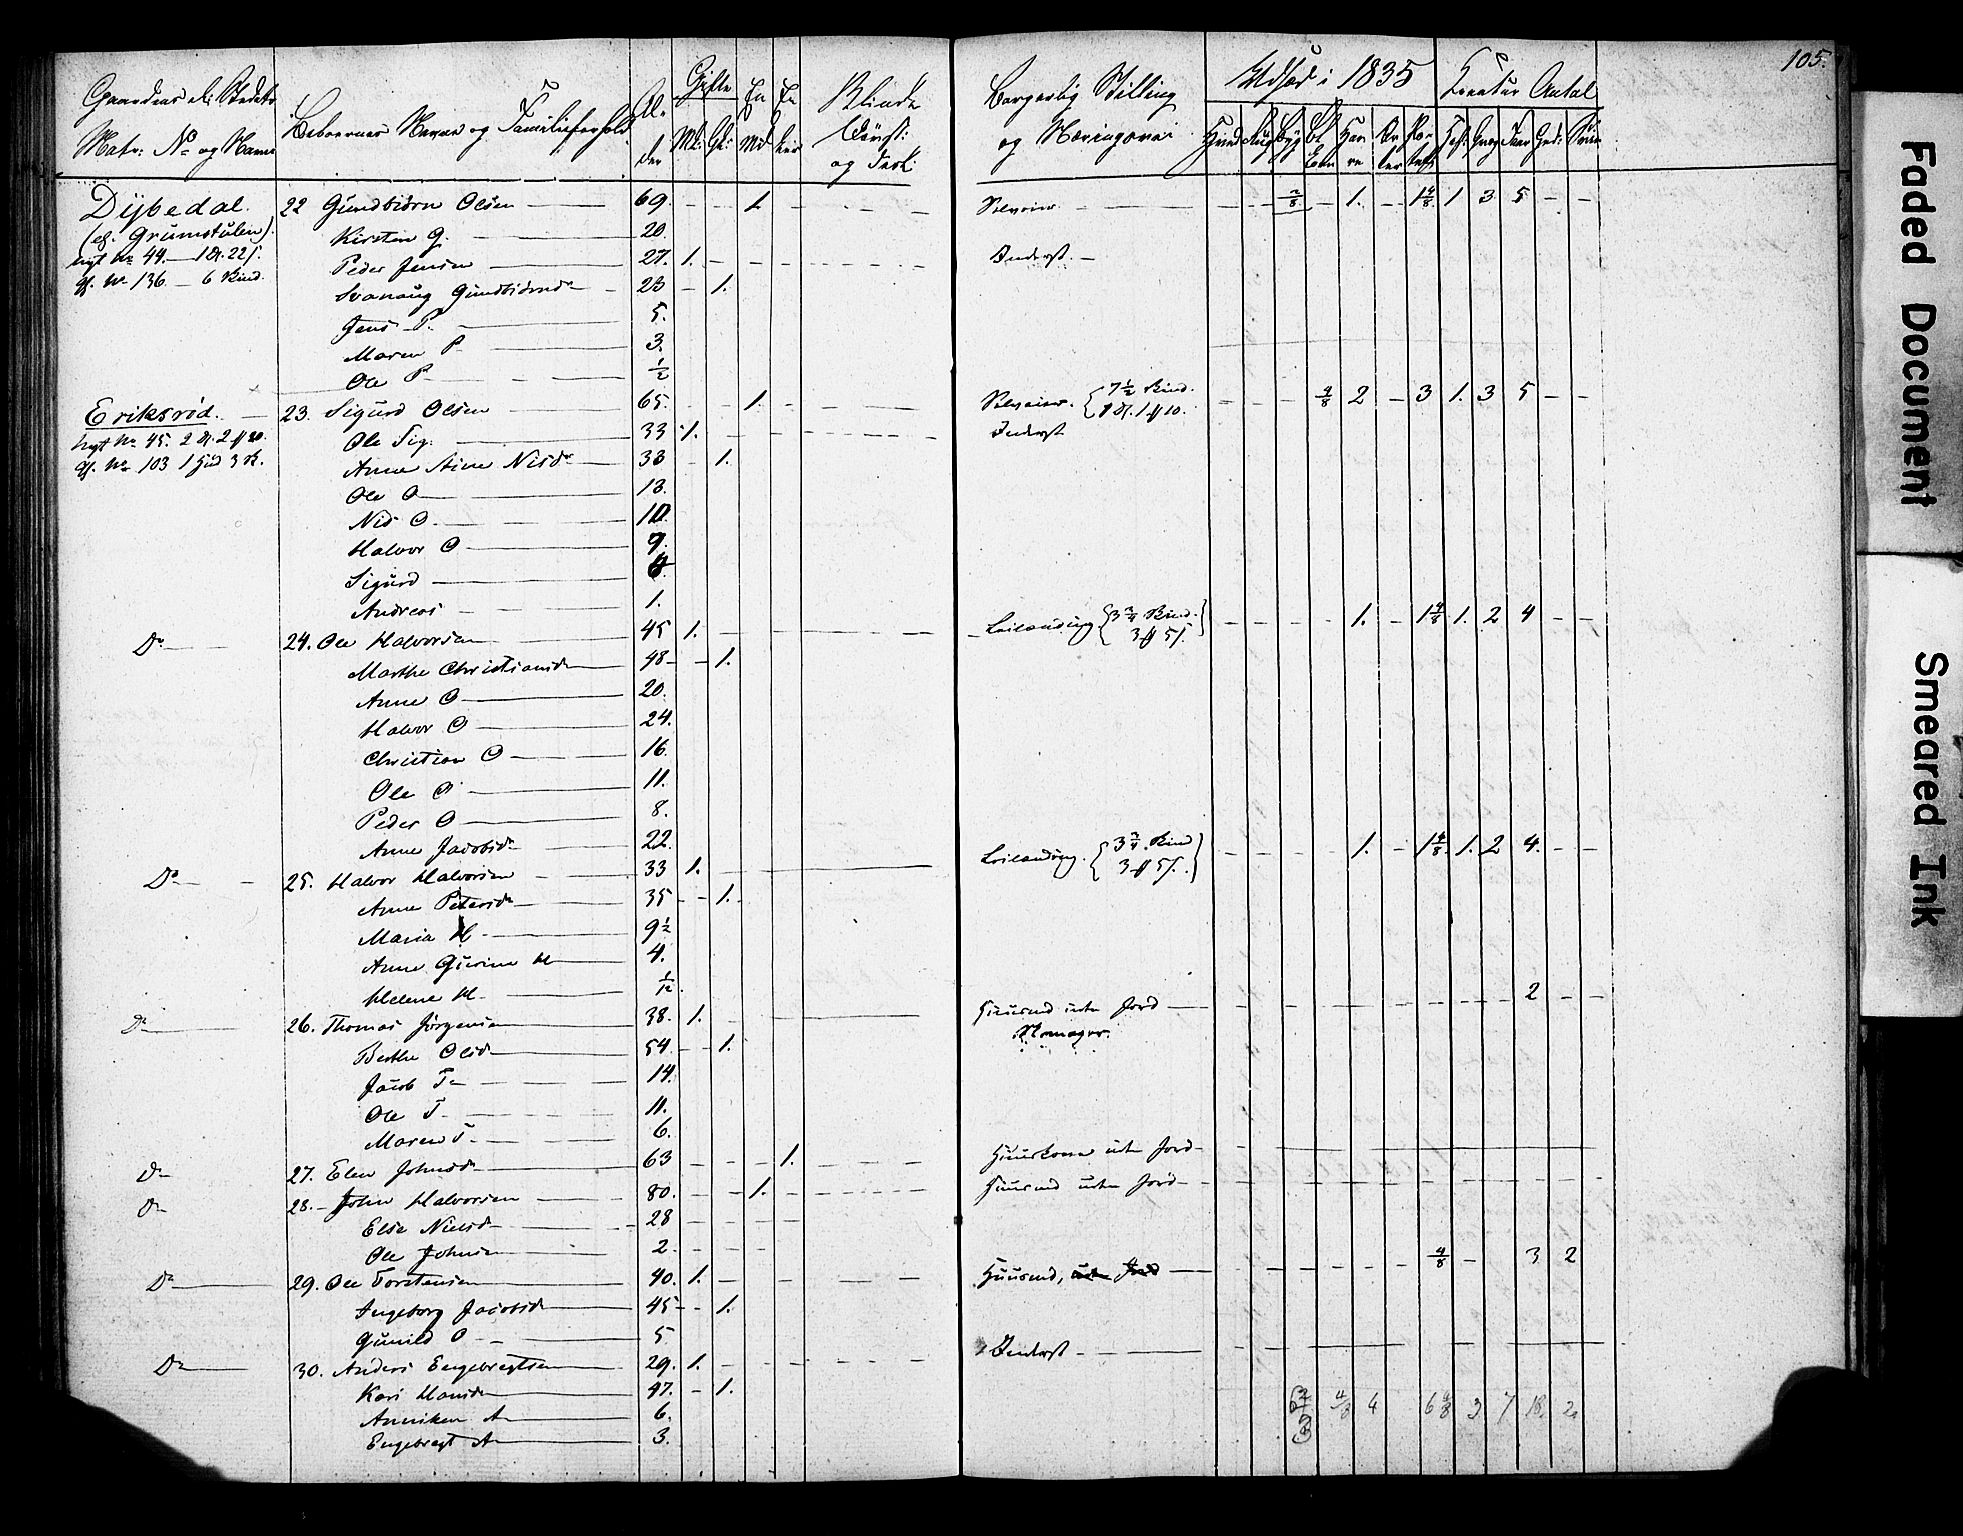 105.
Gaardens el. Stedets
Matr: No og Navn
Beboernes Navne og Familieforhold
Al-
der
Gifte
Mk: Qk:
En
Md
En
ker
Blinde
og
Borgerlig Stilling
og Næringsvei
Udsæd i 1835
Creatur Antal
Dybedal. 22 Gundbiørn Olsen 69. 1 Selveier 2/8 1. 1 4/8 1. 3 5
(el. Grumstulen)
Kirsten G. 20.
nyt No 44. 1 Dl. 22 s.
Peder Jensen 27. 1. Inderst.
gl. No 136. 6 Skind.
Svanaug Gundbiørnsdr 23 1.
Jens P. 5.
Maren P 3.
Ole P 1/2
Eriksrød. 23. Sigurd Olsen 65. 1. Selveier. 7 1/2 Skind. 4/8 2 3 1. 3 5
nyt No 45. 2 Dl. 2 # 20.
Ole Sig. 33 1. Inderst
gl. No 103 1 Hud 3 S.
Anne Nilsdr 33 1.
Ole O 13.
Nils O. 10.
Halvor O 7.
Sigurd
Andreas 1.
Do 24. Ole Halvorsen 45 1. Leilænding 3 3/4 Skind. 3 # 5 s. 1. 1 4/8 1. 2 4
Marthe Christiansdr 48 1.
Anne O 20.
Halvor O 24.
Christian O 16.
Ole O 11.
Peder O 8.
Anne Jacobsdr 22.
Do 25. Halvor Halvorsen 33 1. Leilænding. 3 3/4 Skind 3 # 5 s. 1. 1 4/8 1. 2 4.
Anne Petersdr 35 1.
Maria H. 9 1/2
Anne Gurine H 4.
Helene H. 1/12
Do 26. Thomas Jørgensen 38. 1. Huusmd uden Jord 2
Skomager.
Berthe Olsdr 54. 1.
Jacob T. 14.
Ole T. 11.
Maren T. 6.
Do 27. Elen Johnsdr 63 1. Huuskone uden Jord
Do 28. John Halvorsen 80. 1. Huusmd uden Jord
Else Nielsdr 28
Ole Johnsen 2.
Do 29. Ole Torstensen 40. 1. Huusmd, uden Jord 4/8 3 2
Ingeborg Jacobsdr 45 1.
Gunild O 5
Do 30. Anders Engebregtsen 29. 1. Inderst
Kari Hansdr 47. 1.
Anniken A 6.
Engebregt A 3.
4/8 4 6 4/8 3 7 18. 2
Faded Document
Smeared Ink